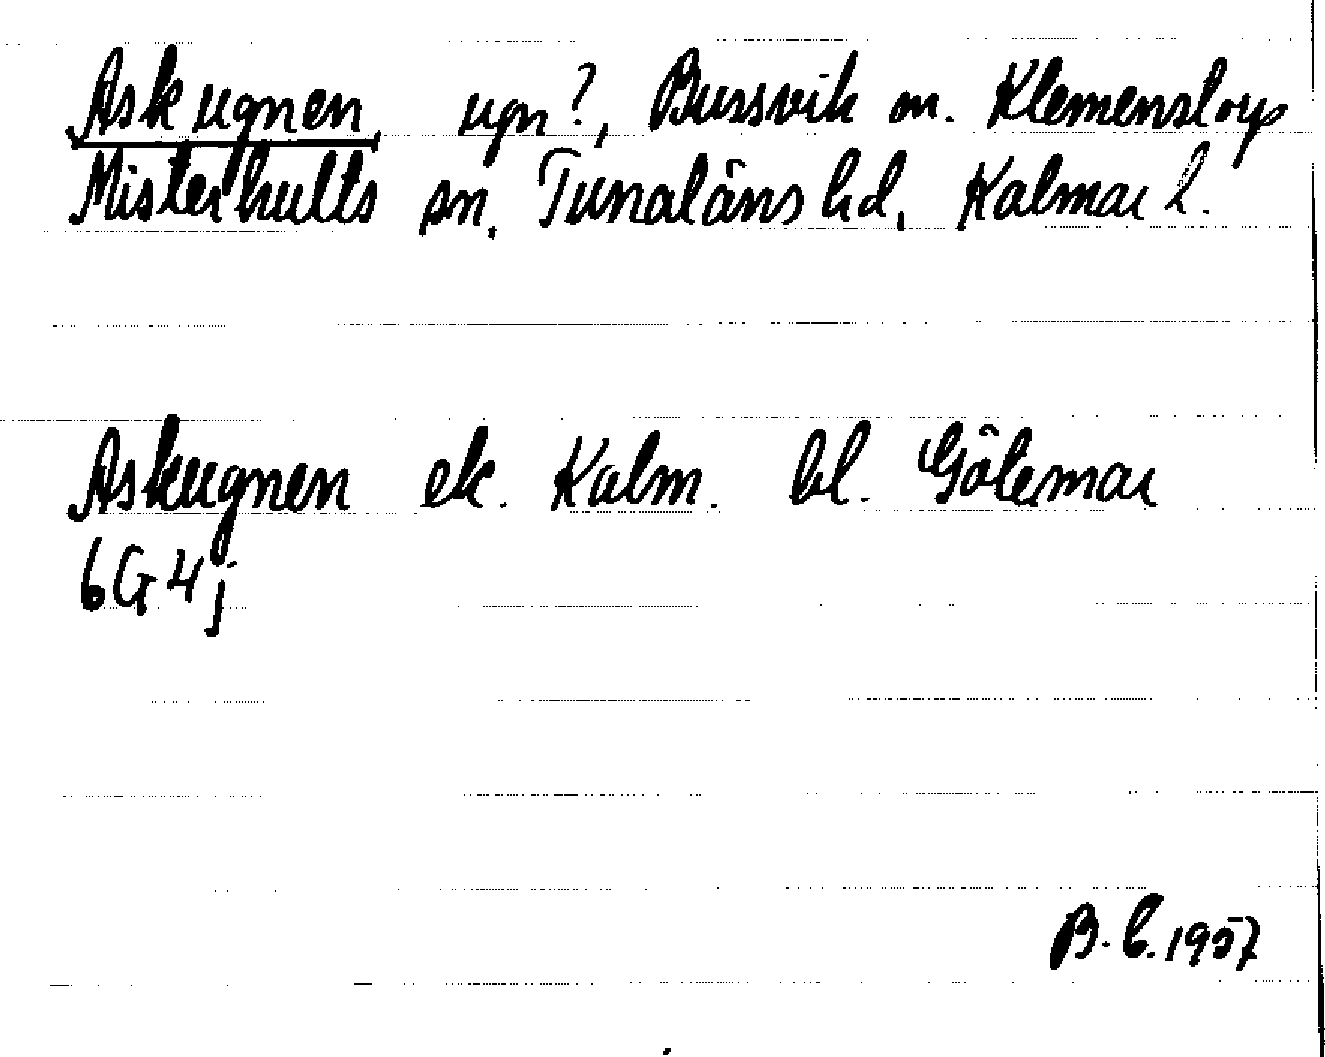 Askugnen, ugn?, Bussvik m. Klemenstorp
Misterhults sn. Tunaläns hd, Kalmar l.
Askugnen ek. Kalm. bl. Götemar
6G4j
B. b. 1957